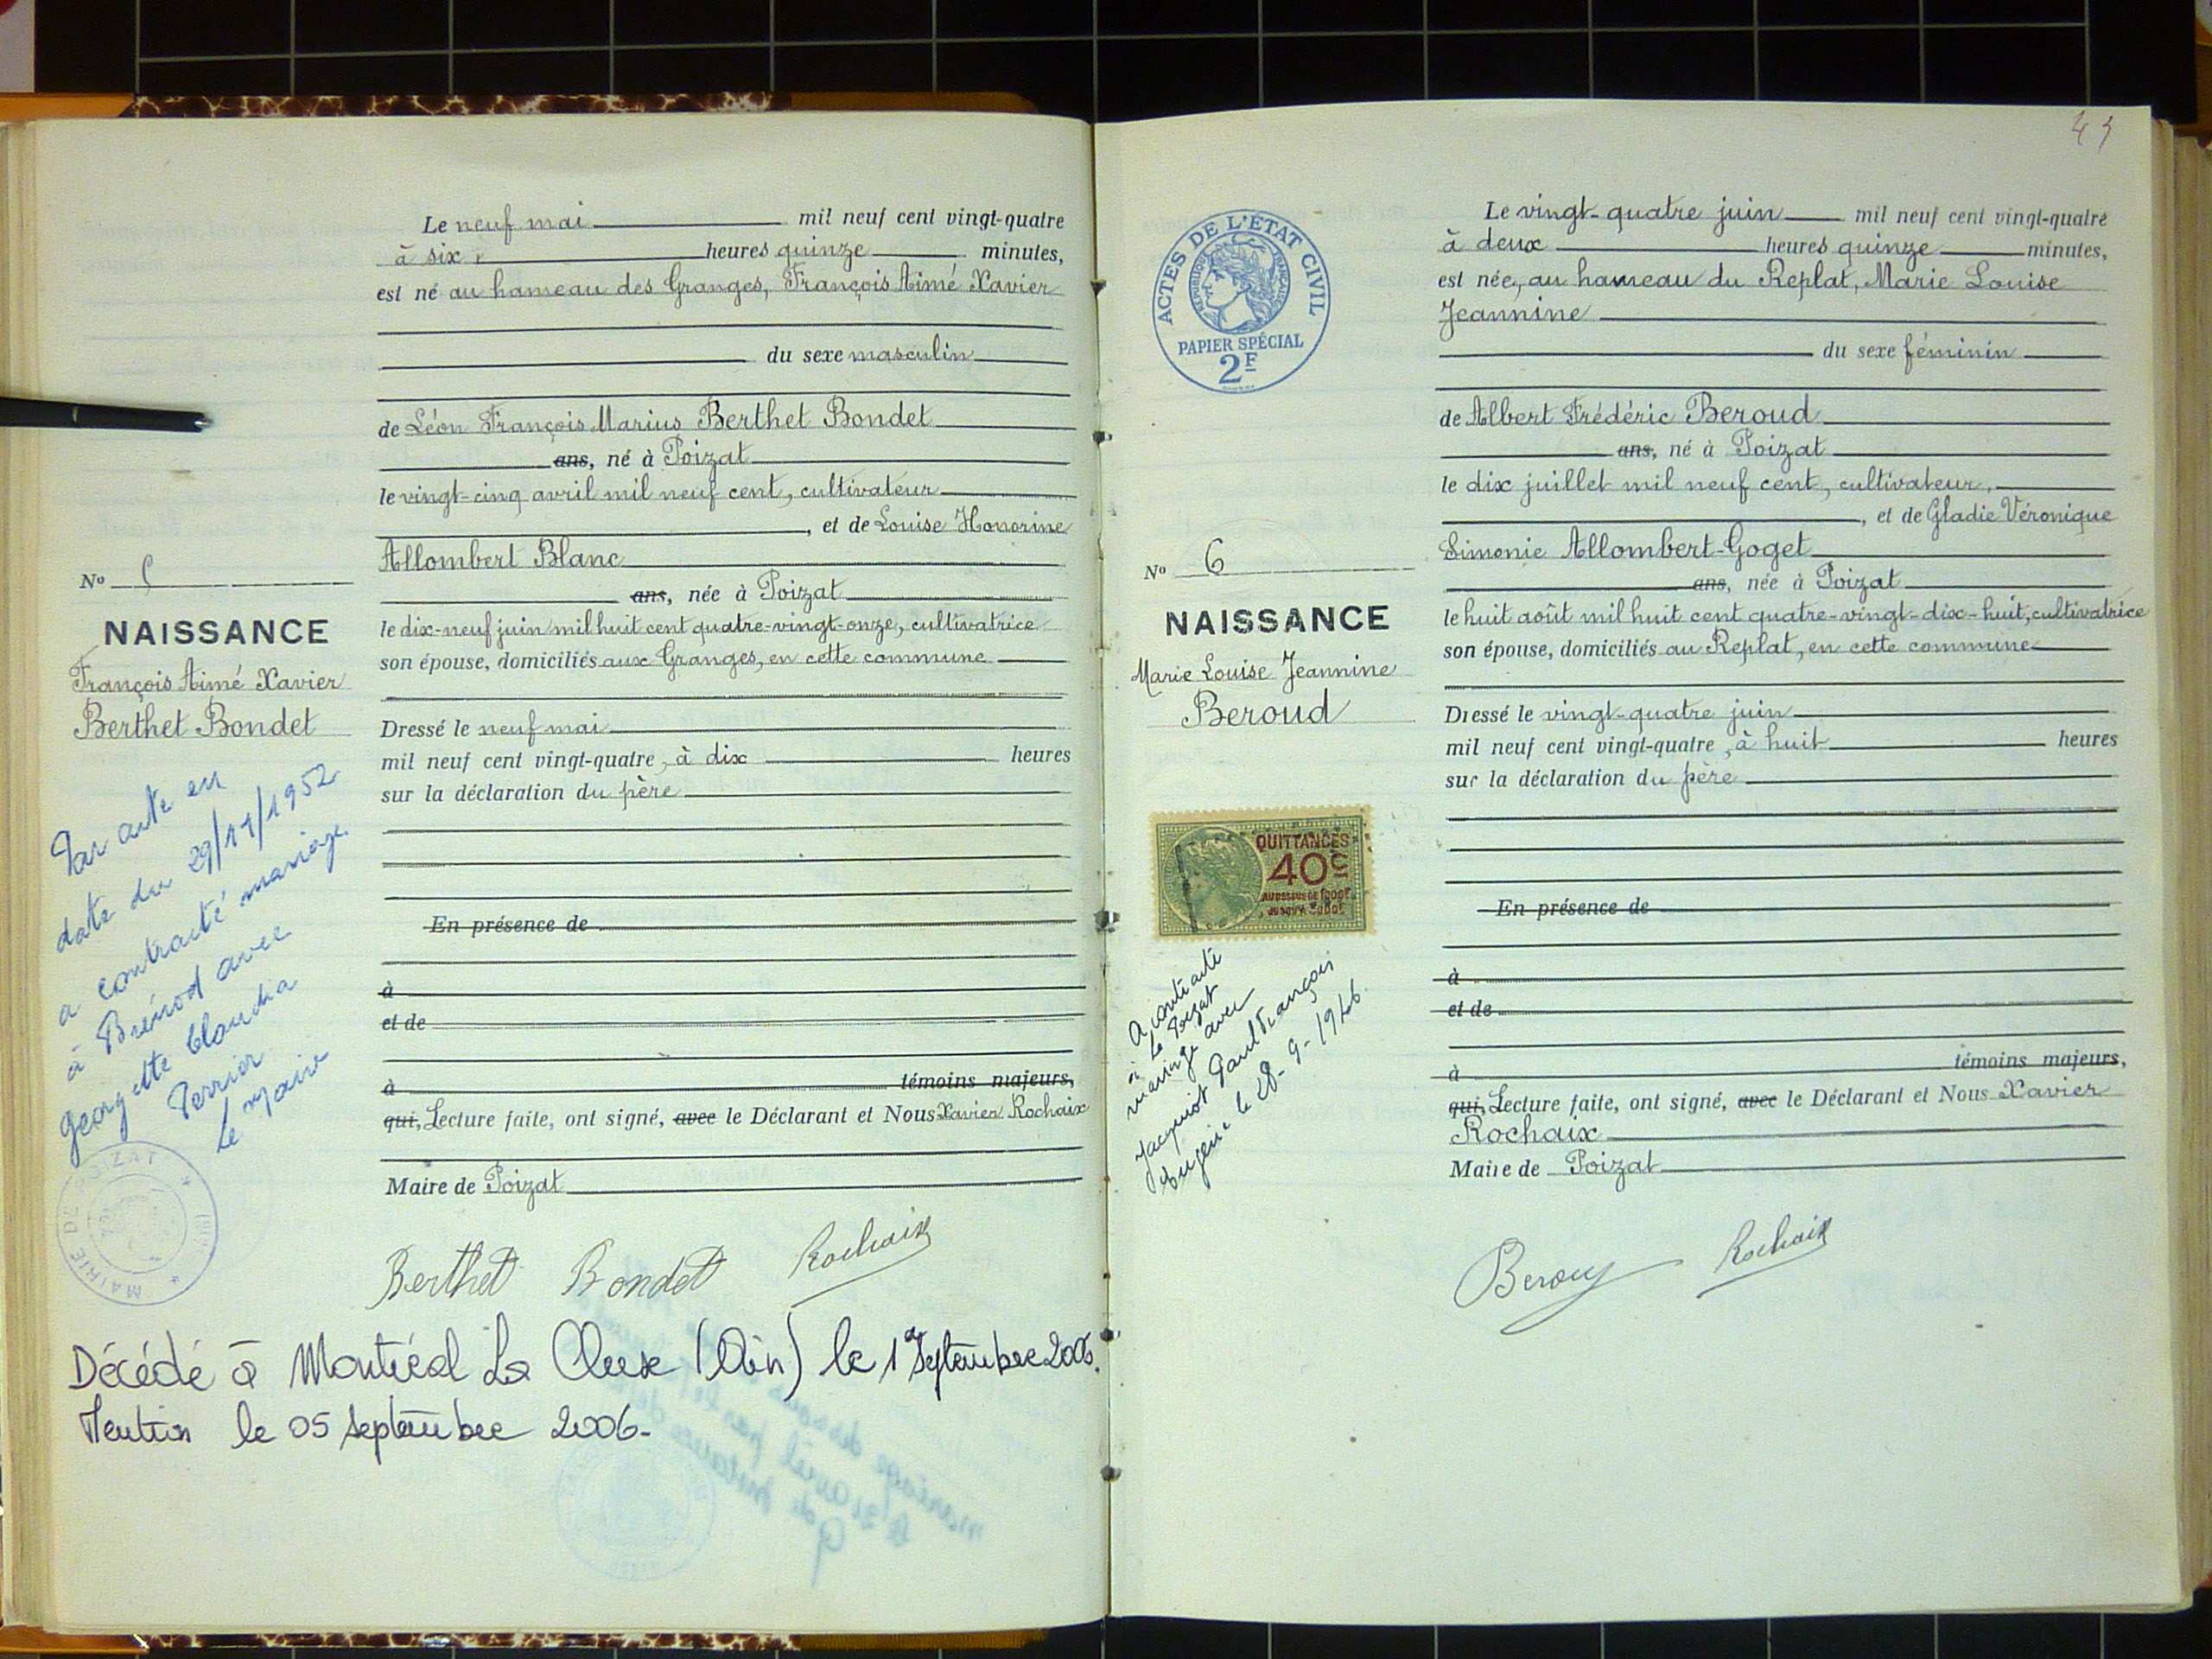 Le neuf mai mil neuf cent vingt-quatre
à six heures quinze minutes,
est né au hameau des Granges, François Aimé Xavier
du sexe masculin
de Léon François Marius Berthet Bondet
ans, né à Poizat
le vingt-cinq avril mil neuf cent, cultivateur
, et de Louise Honorine
Allombert Blanc
ans, née à Poizat
le dix-neuf juin mil huit cent quatre-vingt-onze, cultivatrice
son épouse, domiciliés aux Granges, en cette commune
Dressé le neuf mai
mil neuf cent vingt-quatre, à dix heures
sur la déclaration du père
En présence de
à
et de
à témoins majeurs,
qui, Lecture faite, ont signé, avec le Déclarant et Nous Xavier Rochaix
Maire de Poizat
Berthet Bondet Rochaix
No
NAISSANCE
François Aimé Xavier
Berthet Bondet
Par acte en
date du 29/11/1952
a contracté mariage
à Brénod avec
Georgette Claudia
Perrier
Le Maire
MAIRIE DE POIZAT
Décédé à Montréal La Cluse (Ain) le 1er Septembre 2006.
Mention le 05 septembre 2006-
43
ACTES DE L'ÉTAT CIVIL
RÉPUBLIQUE FRANÇAISE
PAPIER SPÉCIAL
2F
Le vingt-quatre juin mil neuf cent vingt-quatre
à deux heures quinze minutes,
est née, au hameau du Replat, Marie Louise
Jeannine
du sexe féminin
de Albert Frédéric Beroud
ans, né à Poizat
le dix juillet mil neuf cent, cultivateur,
, et de Gladie Véronique
Simonie Allombert-Goget
ans, née à Poizat
le huit août mil huit cent quatre-vingt-dix-huit, cultivatrice
son épouse, domiciliés au Replat, en cette commune
Dressé le vingt-quatre juin
mil neuf cent vingt-quatre, à huit heures
sur la déclaration du père
En présence de
à
et de
à témoins majeurs,
qui, Lecture faite, ont signé, avec le Déclarant et Nous Xavier
Rochaix
Maire de Poizat
Berou Rochaix
No 6
NAISSANCE
Marie Louise Jeannine
Beroud
QUITTANCES
40c
A contracté
à Le Poizat
mariage avec
Jacquiot Paul François
Eugène le 28-9-1946